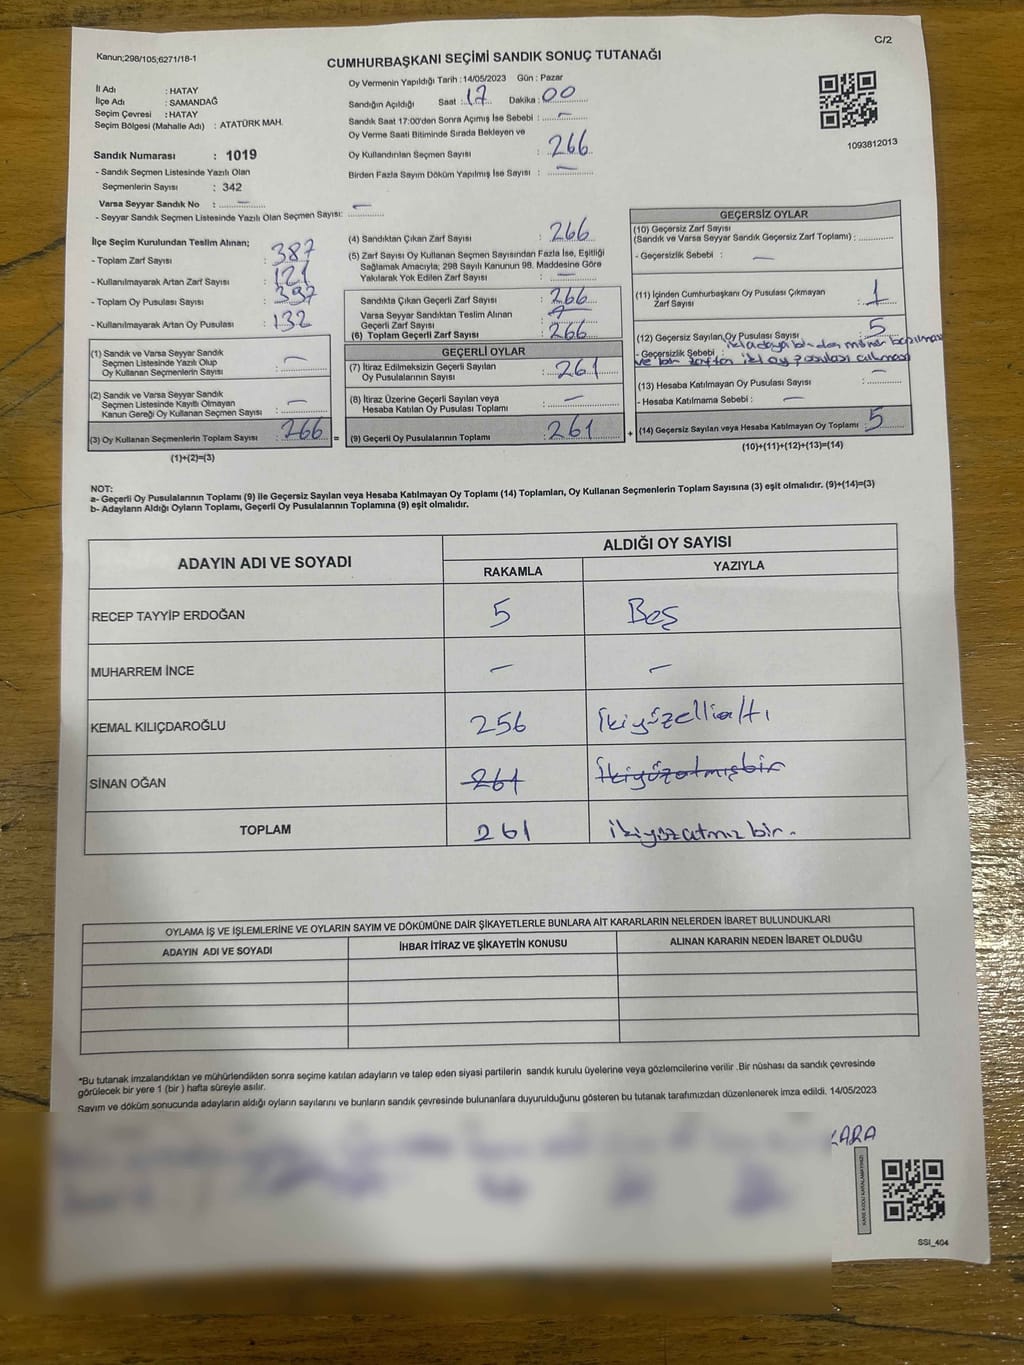 Kanun;298/105;6271/18-1
C/2
CUMHURBAŞKANI SEÇİMİ SANDIK SONUÇ TUTANAĞI
İl Adı : HATAY
İlçe Adı : SAMANDAĞ
Seçim Çevresi : HATAY
Seçim Bölgesi (Mahalle Adı) : ATATÜRK MAH.
Sandık Numarası : 1019
- Sandık Seçmen Listesinde Yazılı Olan
Seçmenlerin Sayısı : 342
Varsa Seyyar Sandık No : –
- Seyyar Sandık Seçmen Listesinde Yazılı Olan Seçmen Sayısı: –
Oy Vermenin Yapıldığı Tarih : 14/05/2023 Gün : Pazar
Sandığın Açıldığı Saat : 17 Dakika : 00
Sandık Saat 17:00'den Sonra Açımış İse Sebebi : –
Oy Verme Saati Bitiminde Sırada Bekleyen ve
Oy Kullandırılan Seçmen Sayısı : 266
Birden Fazla Sayım Döküm Yapılmış İse Sayısı : –
1093812013
İlçe Seçim Kurulundan Teslim Alınan;
- Toplam Zarf Sayısı : 387
- Kullanılmayarak Artan Zarf Sayısı : 121
- Toplam Oy Pusulası Sayısı : 397
- Kullanılmayarak Artan Oy Pusulası : 132
(1) Sandık ve Varsa Seyyar Sandık
Seçmen Listesinde Yazılı Olup
Oy Kullanan Seçmen Sayısı : –
(2) Sandık ve Varsa Seyyar Sandık
Seçmen Listesinde Kayıtlı Olmayan
Kanun Gereği Oy Kullanan Seçmen Sayısı : –
(3) Oy Kullanan Seçmenlerin Toplam Sayısı : 266 =
(1)+(2)=(3)
(4) Sandıktan Çıkan Zarf Sayısı : 266
(5) Zarf Sayısı Oy Kullanan Seçmen Sayısından Fazla İse, Eşitliği
Sağlamak Amacıyla; 298 Sayılı Kanunun 98. Maddesine Göre
Yakılarak Yok Edilen Zarf Sayısı : –
Sandıkta Çıkan Geçerli Zarf Sayısı : 266
Varsa Seyyar Sandıktan Teslim Alınan
Geçerli Zarf Sayısı :
(6) Toplam Geçerli Zarf Sayısı : 266
GEÇERLİ OYLAR
(7) İtiraz Edilmeksizin Geçerli Sayılan
Oy Pusulalarının Sayısı : 261
(8) İtiraz Üzerine Geçerli Sayılan veya
Hesaba Katılan Oy Pusulası Toplamı : –
(9) Geçerli Oy Pusulalarının Toplamı : 261 +
GEÇERSİZ OYLAR
(10) Geçersiz Zarf Sayısı
(Sandık ve Varsa Seyyar Sandık Geçersiz Zarf Toplamı) :
- Geçersizlik Sebebi : –
(11) İçinden Cumhurbaşkanı Oy Pusulası Çıkmayan
Zarf Sayısı : 1
(12) Geçersiz Sayılan Oy Pusulası Sayısı : 5
- Geçersizlik Sebebi : iki adaya birden mühür basılması
ve bir zaftan iki oy pusulası çıkması
(13) Hesaba Katılmayan Oy Pusulası Sayısı : –
- Hesaba Katılmama Sebebi : –
(14) Geçersiz Sayılan veya Hesaba Katılmayan Oy Toplamı : 5
(10)+(11)+(12)+(13)=(14)
NOT:
a- Geçerli Oy Pusulalarının Toplamı (9) ile Geçersiz Sayılan veya Hesaba Katılmayan Oy Toplamı (14) Toplamları, Oy Kullanan Seçmenlerin Toplam Sayısına (3) eşit olmalıdır. (9)+(14)=(3)
b- Adayların Aldığı Oyların Toplamı, Geçerli Oy Pusulalarının Toplamına (9) eşit olmalıdır.
ADAYIN ADI VE SOYADI ALDIĞI OY SAYISI
RAKAMLA YAZIYLA
RECEP TAYYİP ERDOĞAN 5 Beş
MUHARREM İNCE – –
KEMAL KILIÇDAROĞLU 256 İkiyüzellialtı
SİNAN OĞAN 261 İkiyüzatmışbir
TOPLAM 261 ikiyüzatmızbir.
OYLAMA İŞ VE İŞLEMLERİNE VE OYLARIN SAYIM VE DÖKÜMÜNE DAİR ŞİKAYETLERLE BUNLARA AİT KARARLARIN NELERDEN İBARET BULUNDUKLARI
ADAYIN ADI VE SOYADI İHBAR İTİRAZ VE ŞİKAYETİN KONUSU ALINAN KARARIN NEDEN İBARET OLDUĞU
*Bu tutanak imzalandıktan ve mühürlendikten sonra seçime katılan adayların ve talep eden siyasi partilerin sandık kurulu üyelerine veya gözlemcilerine verilir .Bir nüshası da sandık çevresinde
görülecek bir yere 1 (bir ) hafta süreyle asılır.
Sayım ve döküm sonucunda adayların aldığı oyların sayılarını ve bunların sandık çevresinde bulunanlara duyurulduğunu gösteren bu tutanak tarafımızdan düzenlenerek imza edildi. 14/05/2023
KARA
SSİ_404